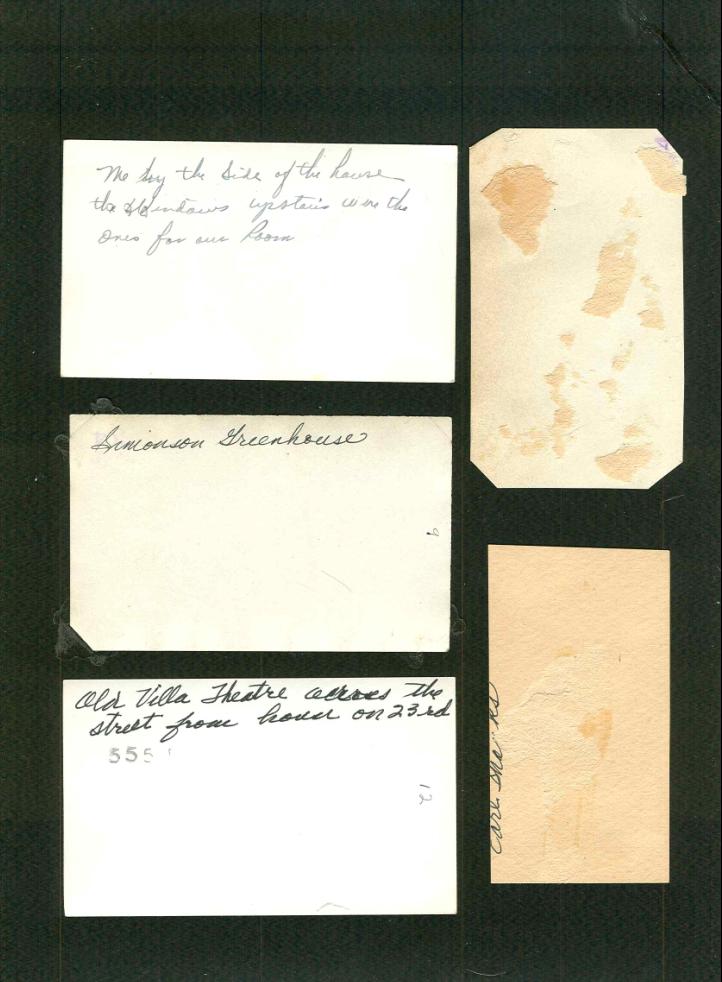 Me by the side of the house
the Windows upstairs were the
ones for our Room
Simonson Greenhouse
9
Old Villa Theatre across the
street from house on 23rd
555
12
Carl